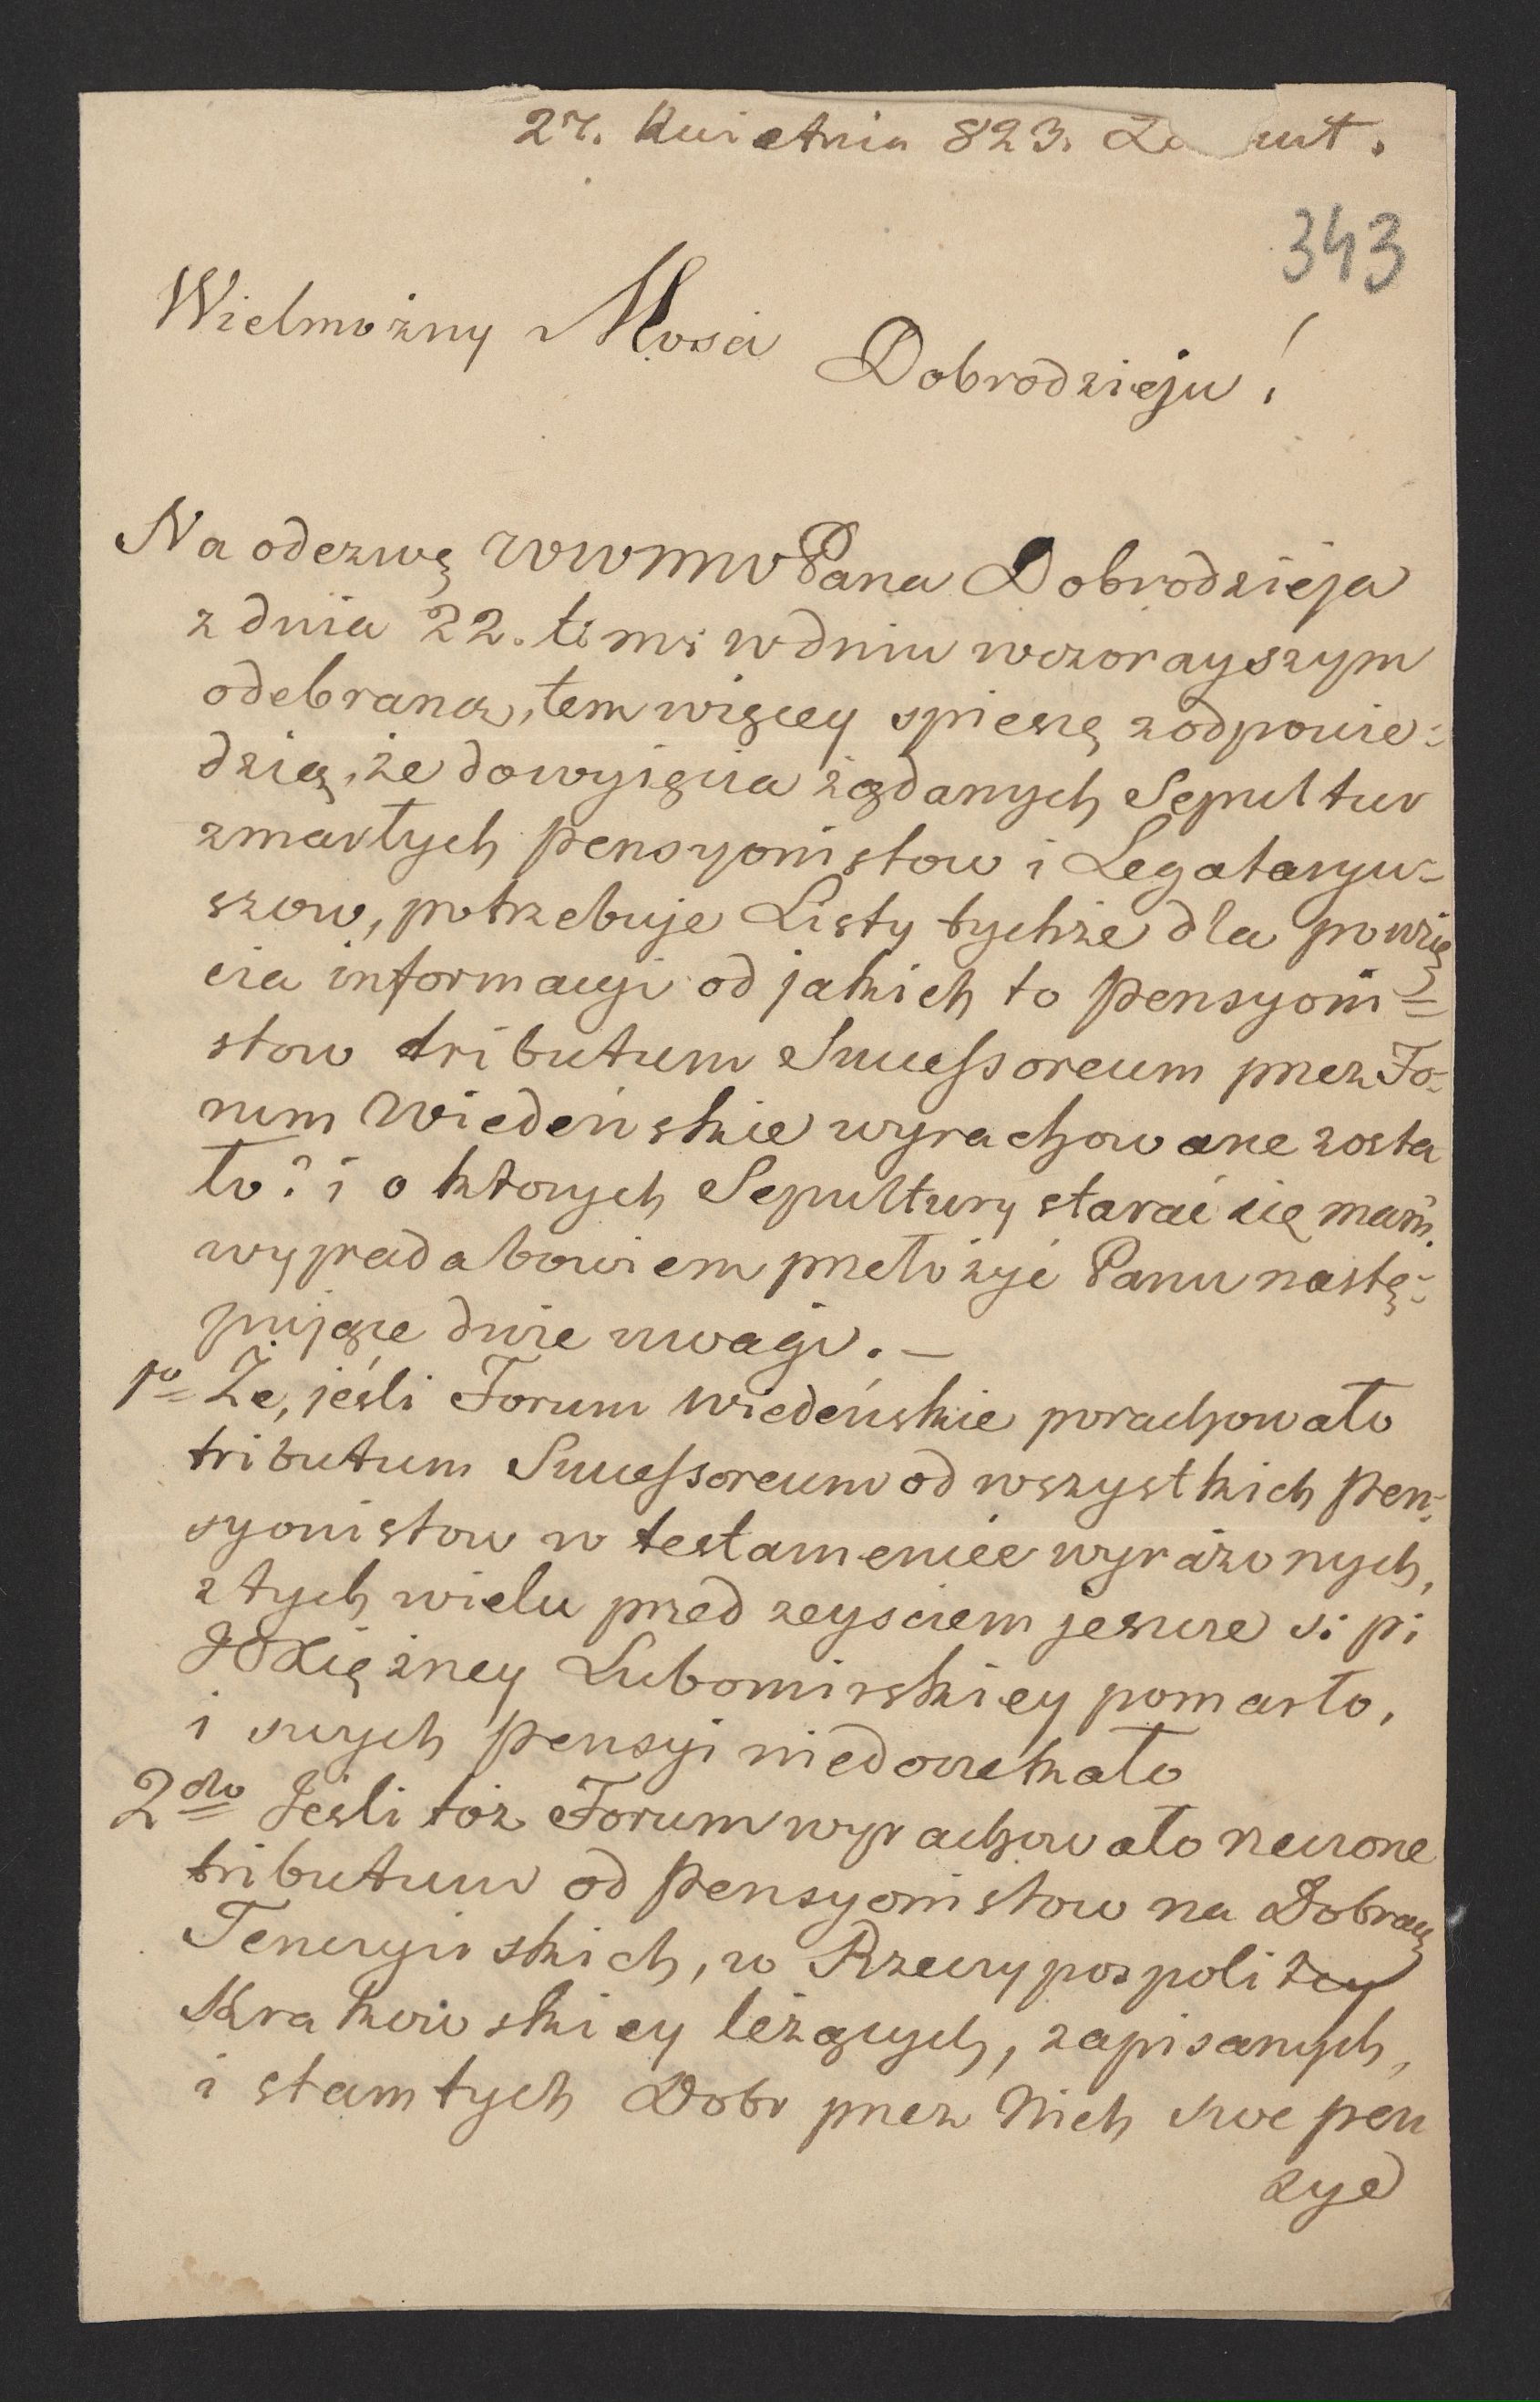 27. Kwietnia 823.
343
Wielmożny Mosci
Dobrodzieju!
Na odezwę WWMWPana Dobrodzieja
z dnia 22. t: m: w dniu wczorayszym
odebraną, tem więcey spieszę z odpowie:
dzią, że do wyjęcia żądanych Sepultur
zmarłych pensyonistow i Legataryu=
szow, potrzebuje Listy tychże dla powzię
cia informacyi od jakich to pensyoni=
stow tributum Successoreum przez Fo=
rum Wiedeńskie wyrachowane zosta
ło? i o ktorych Sepultury starać się mam.
wypada bowiem przełożyć Panu nastę=
pujące dwie uwagi. —
1o Że, jeśli Forum Wiedeńskie porachowało
tributum Successoreum od wszystkich pen=
syonistow w testamencie wyrażonych,
z tych wielu przed zeyściem jeszcze ś: p:
JOXiężney Lubomirskiey pomarło,
i swych pensyi niedoczekało
2do Jeśli toż Forum wyrachowało rzeczone
tributum od pensyonistow na Dobrach
Tenczyńskich, w Rzeczypospolitey
Krakowskiey leżących, zapisanych,
i z tamtych Dobr przez Nich swe pen
zye